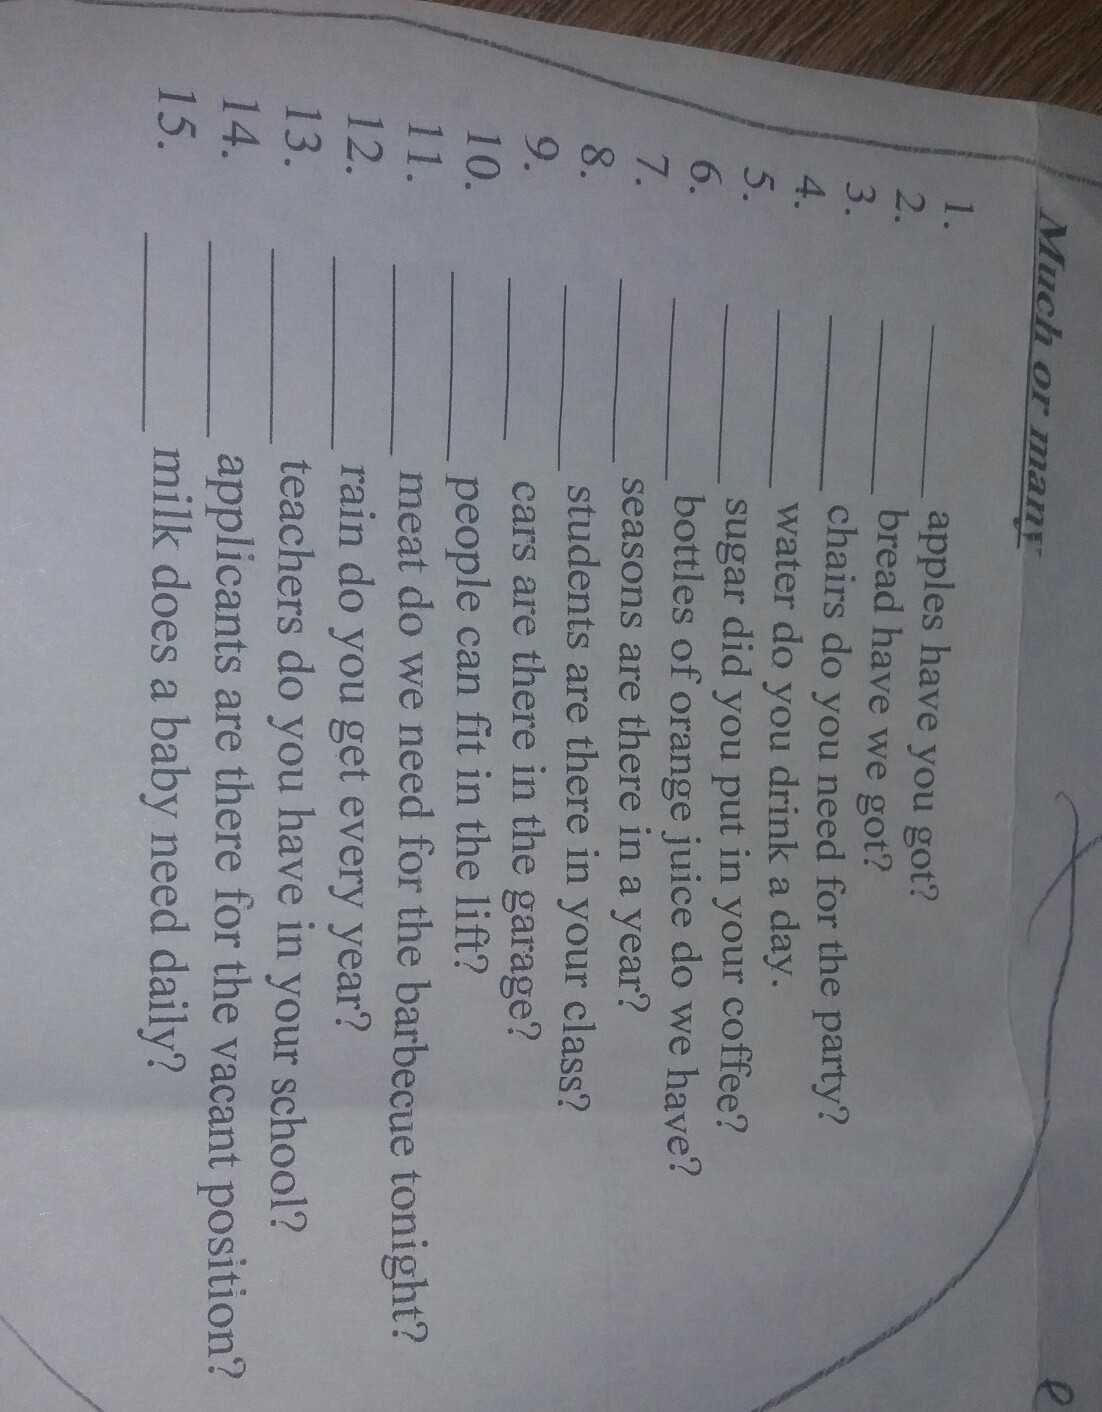 Much or many
1. __________ apples have you got?
2. __________ bread have we got?
3. __________ chairs do you need for the party?
4. __________ water do you drink a day.
5. __________ sugar did you put in your coffee?
6. __________ bottles of orange juice do we have?
7. __________ seasons are there in a year?
8. __________ students are there in your class?
9. __________ cars are there in the garage?
10. __________ people can fit in the lift?
11. __________ meat do we need for the barbecue tonight?
12. __________ rain do you get every year?
13. __________ teachers do you have in your school?
14. __________ applicants are there for the vacant position?
15. __________ milk does a baby need daily?